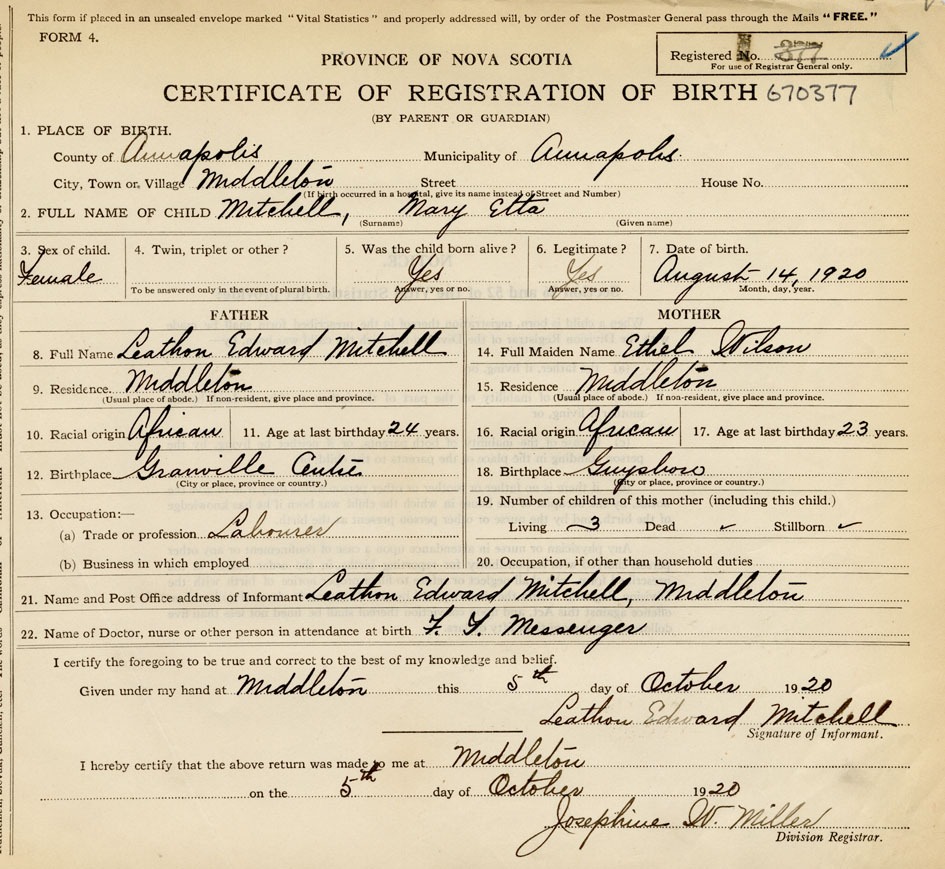 This form if placed in an unsealed envelope marked "Vital Statistics" and properly addressed will, by order of the Postmaster General pass through the Mails "FREE."
FORM 4.
Registered No. 377
For use of Registrar General only.
PROVINCE OF NOVA SCOTIA
CERTIFICATE OF REGISTRATION OF BIRTH 670377
(BY PARENT OR GUARDIAN)
1. PLACE OF BIRTH.
County of Annapolis Municipality of Annapolis.
City, Town or Village Middleton Street House No.
(If birth occurred in a hospital, give its name instead of Street and Number)
2. FULL NAME OF CHILD Mitchell, Mary Etta
(Surname) (Given name)
3. Sex of child. 4. Twin, triplet or other? 5. Was the child born alive? 6. Legitimate? 7. Date of birth.
Female Yes Yes August 14, 1920
To be answered only in the event of plural birth. Answer, yes or no. Answer, yes or no. Month, day, year.
FATHER
8. Full Name Leathon Edward Mitchell
9. Residence. Middleton
(Usual place of abode.) If non-resident, give place and province.
10. Racial origin African 11. Age at last birthday 24 years.
12. Birthplace Granville Centre
(City or place, province or country.)
13. Occupation:—
(a) Trade or profession Labourer
(b) Business in which employed
MOTHER
14. Full Maiden Name Ethel Wilson
15. Residence Middleton
(Usual place of abode.) If non-resident, give place and province.
16. Racial origin African 17. Age at last birthday 23 years.
18. Birthplace Guysboro
(City or place, province or country.)
19. Number of children of this mother (including this child.)
Living 3 Dead ✓ Stillborn ✓
20. Occupation, if other than household duties
21. Name and Post Office address of Informant Leathon Edward Mitchell, Middleton
22. Name of Doctor, nurse or other person in attendance at birth F. S. Messenger
I certify the foregoing to be true and correct to the best of my knowledge and belief.
Given under my hand at Middleton this 5th day of October 1920
Leathon Edward Mitchell
Signature of Informant.
I hereby certify that the above return was made to me at Middleton
on the 5th day of October 1920
Josephine W. Miller
Division Registrar.